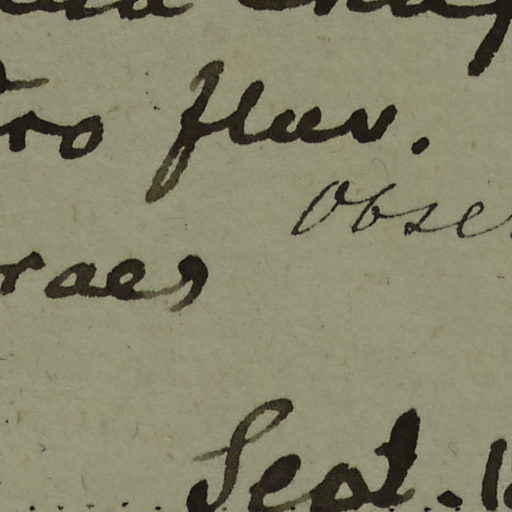 ro flav.
Obse
raes
Sept. 1